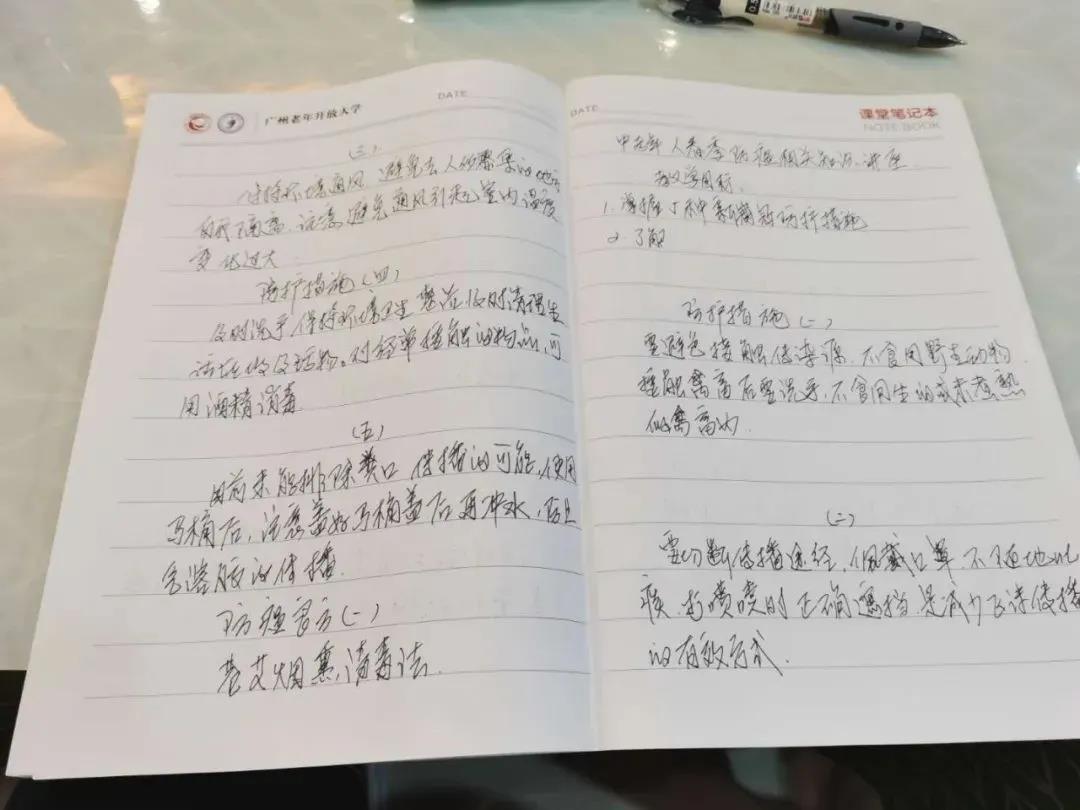 广州老年开放大学
DATE
(三)
保持环境通风,避免去人的聚集的地方
自我隔离.注意避免通风引起室内温度
变化过大.
防护措施(四)
及时洗手保持环境卫生 要并及时清理生
活垃圾及污物。对经常接触的物品,可
用酒精消毒
(五)
目前未能排除粪口 传播的可能,使用
马桶后,注意盖好马桶盖后再冲水,防止
气溶胶的传播.
防疫良方(一)
苍艾烟熏消毒法.
DATE
课堂笔记本
NOTE BOOK
中老年人春季防疫相关知识讲座.
教学目标.
1.掌握了种新冠防护措施
2.了解
防护措施(一)
要避免接触传染源.不食用野生动物.
接触禽畜后要洗手.不食用生的或未煮熟
的禽畜肉.
(二)
要切断传播途径,佩戴口罩.不随地吐
痰.打喷嚏时正确遮挡是减少飞沫传播
的有效方式.
0.5